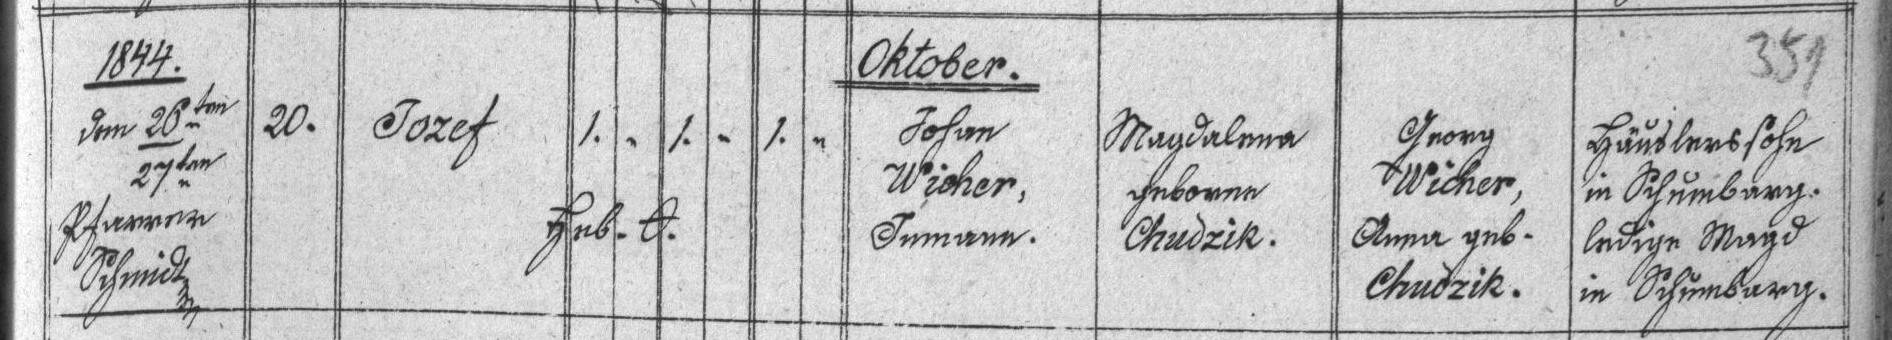 1844.
Oktober.
351
den 26ten 20. Jozef 1. " 1. " 1. " Johan Magdalena Georg Häuslerssohn
27ten Wicher, geborne Wicher, in Schumbarg.
Pfarrer Heb. Inmann. Chudzik. Anna geb. ledige Magd
Schmidt Chudzik. in Schumbarg.